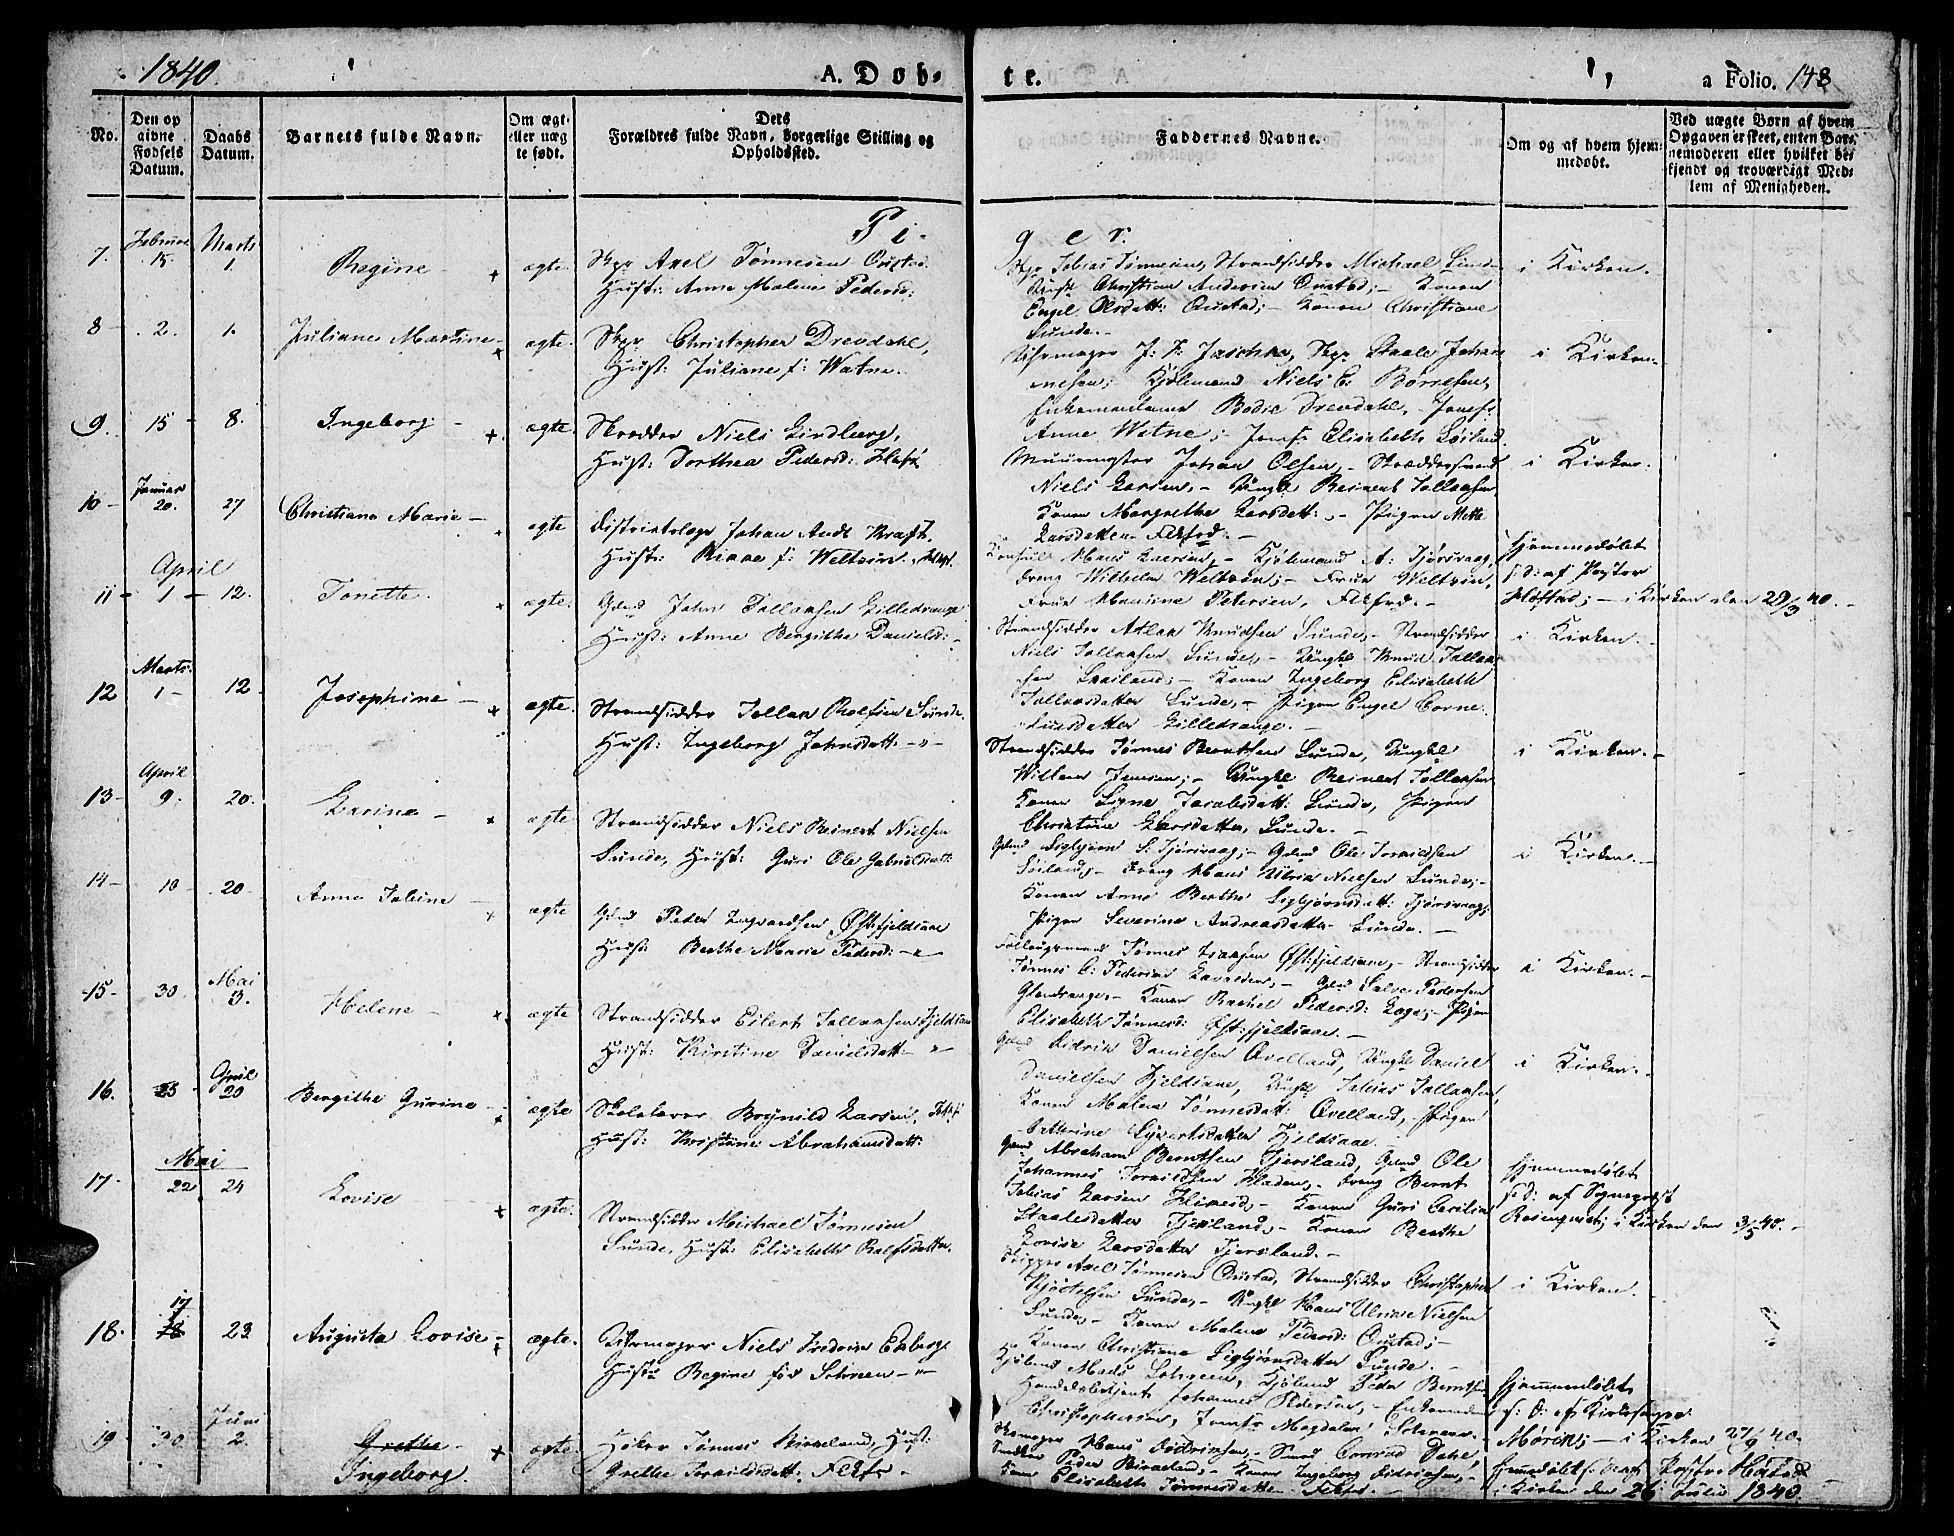 1840.
A. Døb-
te.
a Folio. 148
No.
Den op
givne
Fødsels
Datum.
Daabs
Datum.
Barnets fulde Navn.
Om ægte
eller uæg
te født.
Dets
Forældres fulde Navn, borgerlige Stilling og
Opholdssted.
Faddernes Navne.
Om og af hvem hjem-
medøbt.
Ved uægte Børn af hvem
Opgaven er skeet, enten Bar-
nemoderen eller hvilket be-
kjendt og troværdigt Med-
lem af Menigheden.
Pi-
ger.
7. Februar 15. Marts 1. Regine ægte. Skpr Axel Tønnesen
Hust: Anne Malene Pedersd:
Skpr Tobias Tønnesen, Strandsidder Michael Sunde
Christian Andersen Konen
Engel Olsdatt: Konen Christiane
Sunde.
i Kirken.
8 2. 1. Juliane Martine ægte. Skpr Christopher Drevdahl,
Hust: Juliane f: Watne.
Uhrmager J: F: Jaschke, Skpr Staale Johan
nesen; Kjøbmand Niels C: Børresen,
Bodie Drevdahl, Jomf:
Anne Watne; Jomf: Elisabeth Løiland
i Kirken.
9. 15 8. Ingeborg ægte. Skrædder Niels Lindberg,
Hust: Dorthea Pedersd:
Muurmester Johan Olsen, Skræddersvend
Niels Larsen, Ungk: Reinert Tallaksen
Konen Margrethe Larsdatt:, Pigen Mette
Larsdatter. Flekfrd:
i Kirken.
10 Januar 20. 27 Christiane Marie ægte Districtslæge Johan Andr. Kraft,
Hust: f: Weltzin.
Consul Hans Larsen, Kjøbmand A: Tjørsvaag,
Wilhelm Weltzin; Frue Weltzin,
Frue Hansine Petersen, Flekfrd.
Hjemmedøbt
s: d: af Pastor
Høstad; i Kirken den 29/3 40.
11 April 1 12. Tonette ægte. Gdmd John Tallaksen Lilledrange
Hust: Anne Bergithe Danielsd:
Strandsidder Atlak Knudsen Sunde, Strandsidder
Niels Tallaksen Sunde, Ungk: Knud Tallak
sen Konen Ingeborg Elisabeth
Tallaksdatter Sunde, Pigen Engel Corne-
liusdatter Lilledrange.
i Kirken.
12 Marts 1 12 Josephine ægte. Strandsidder Tallak Rolfsen Sunde
Hust: Ingeborg Johnsdatt:
Strandsidder Tønnes Berntsen Sunde, Ungk:
Willum Jensen; Ungk: Reinert Tallaksen
Konen Signe Jacobsdatt: Sunde, Pigen
Christine Larsdatter, Sunde.
i Kirken.
13 April 9. 20. Larine ægte Strandsidder Niels Reinert Nielsen
Sunde, Hust: Guri Ole Gabrielsdatt:
Gdmd Sigbjørn S: Tjørsvaag; Gdmd Ole Torkildsen
Løiland; Hans Ulrik Nielsen Sunde;
Konen Anne Berthe Sigbjørnsdatt: Tjørsvaag;
Pigen Severine Andreasdatter Sunde.
i Kirken.
14 10 20 Anne Tobine ægte Gdmd Peder Ingvardsen Østre Fjeldsaae
Hust: Berthe Marie Pedersd:
Tønnes Isaksen Øst: fjeldsaae, Strandsidder
Tønnes C: Pedersen Gdmd Salve Pedersen
Konen Rachel Pedersd: Pigen
Elisabeth Tønnesd: Øst: fjeldsaae.
i Kirken.
15 30. Mai 3. Helene ægte Strandsidder Eilert Tallaksen Fjeldsaae
Hust: Kirstine Danielsdatt:
Gdmd Didrik Danielsen Øvelland, Ungk: Daniel
Danielsen Fjeldsaae, Ungk: Tobias Tallaksen,
Konen Malene Tønnesdatt: Øvelland, Pigen
Cathrine Fjeldsaae.
i Kirken.
16. 25 April 20 Bergithe Gurine ægte Skolelærer Brynild Larsen,
Hust: Kristine Abrahamsdatt:
Gdmd Abraham Berntsen Fjersland, Gdmd Ole
Johannes Torkildsen Bernt
Tobias Larsen Konen Guri Cecilie
Staalesdatter Fjersland, Konen Berthe
Lovise Larsdatter Fjersland.
Hjemmedøbt
s: d: af Sognepræst
Rosenqvist; i Kirken den 3/5 40.
17 Mai 22 24 Lovise ægte. Strandsidder Michael Tønnesen
Sunde, Hust: Elisabeth Rolfsdatter
Skipper Axel Tønnesen Strandsidder Christopher
Sunde, Ungk: Hans Ulrik Nielsen
Sunde, Konen Malene Pedersd:
Konen Christiane Sigbjørnsdatter Sunde.
i Kirken.
18. 17 23 Augusta Lovise ægte. Uhrmager Niels Fredrik Enberg
Hust: Regine fød Schreen
Kjøbmd Mads Kjøbmd Peder Berntsen
Handelsbetjent Johannes Pedersen,
Christophersen, Jomfr Magdalene
Hjemmedøbt
s: D: af Kirkesanger
Mørch; i Kirken 27/9 40.
19 30 Juni 2. Grethe
Ingeborg. ægte. Høker Tønnes Birkeland, Hust:
Grethe Torkildsdatt: Flekf:
Skomager Hans Didriksen, Smed Conrad Dahl,
Peder Birkeland, Konen Ingeborg Didriksen,
Konen Elisabeth Tønnesdatter Flekfrd.
Hjemmedøbt Pastor Høstad
i Kirken den 26 Julii 1840.